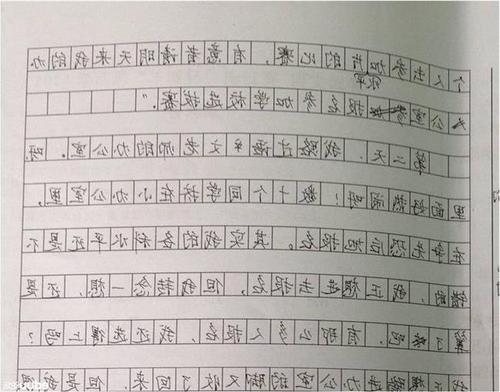 个人去参加书的比赛，有意者请明天来我的办
公室报名参加学校选拔赛。”
第二天，我路过语文老师的办公室。呀
里面好热闹啊！数十个同学挤在小办公室里，
在争先恐后地报名。其实我的各科水平还是不
错的，我正想去报名，但我转念一想，还是
算了吧，有那么多人报名，我还选得上吗？
办公室的脚又收了回来。但是